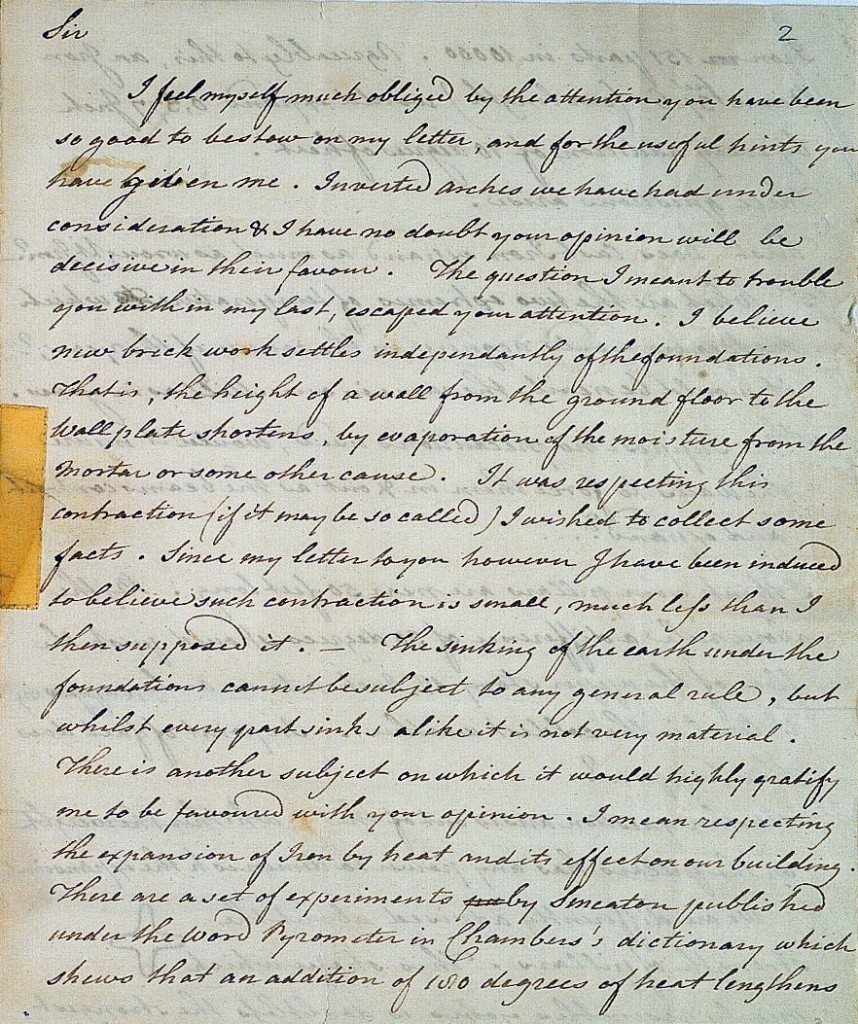 Sir 2
I feel myself much obliged by the attention you have been
so good to bestow on my letter, and for the useful hints you
have given me. Inverted arches we have had under
consideration & I have no doubt your opinion will be
decisive in their favour. The question I meant to trouble
you with in my last, escaped your attention. I believe
new brick work settles independantly of the foundations.
That is, the height of a wall from the ground floor to the
Wall plate shortens, by evaporation of the moisture from the
mortar or some other cause. It was respecting this
contraction (if it may be so called) I wished to collect some
facts. Since my letter to you however I have been induced
to believe such contraction is small, much less than I
then supposed it. — The sinking of the earth under the
foundations cannot be subject to any general rule, but
whilst every part sinks alike it is not very material.
There is another subject on which it would highly gratify
me to be favoured with your opinion. I mean respecting
the expansion of Iron by heat and its effect on our building.
There are a set of experiments by Smeaton published
under the Word Pyrometer in Chambers's dictionary which
shews that an addition of 180 degrees of heat lengthens